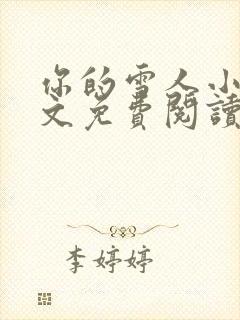 你的雪人小
文免費閱讀
李婷婷